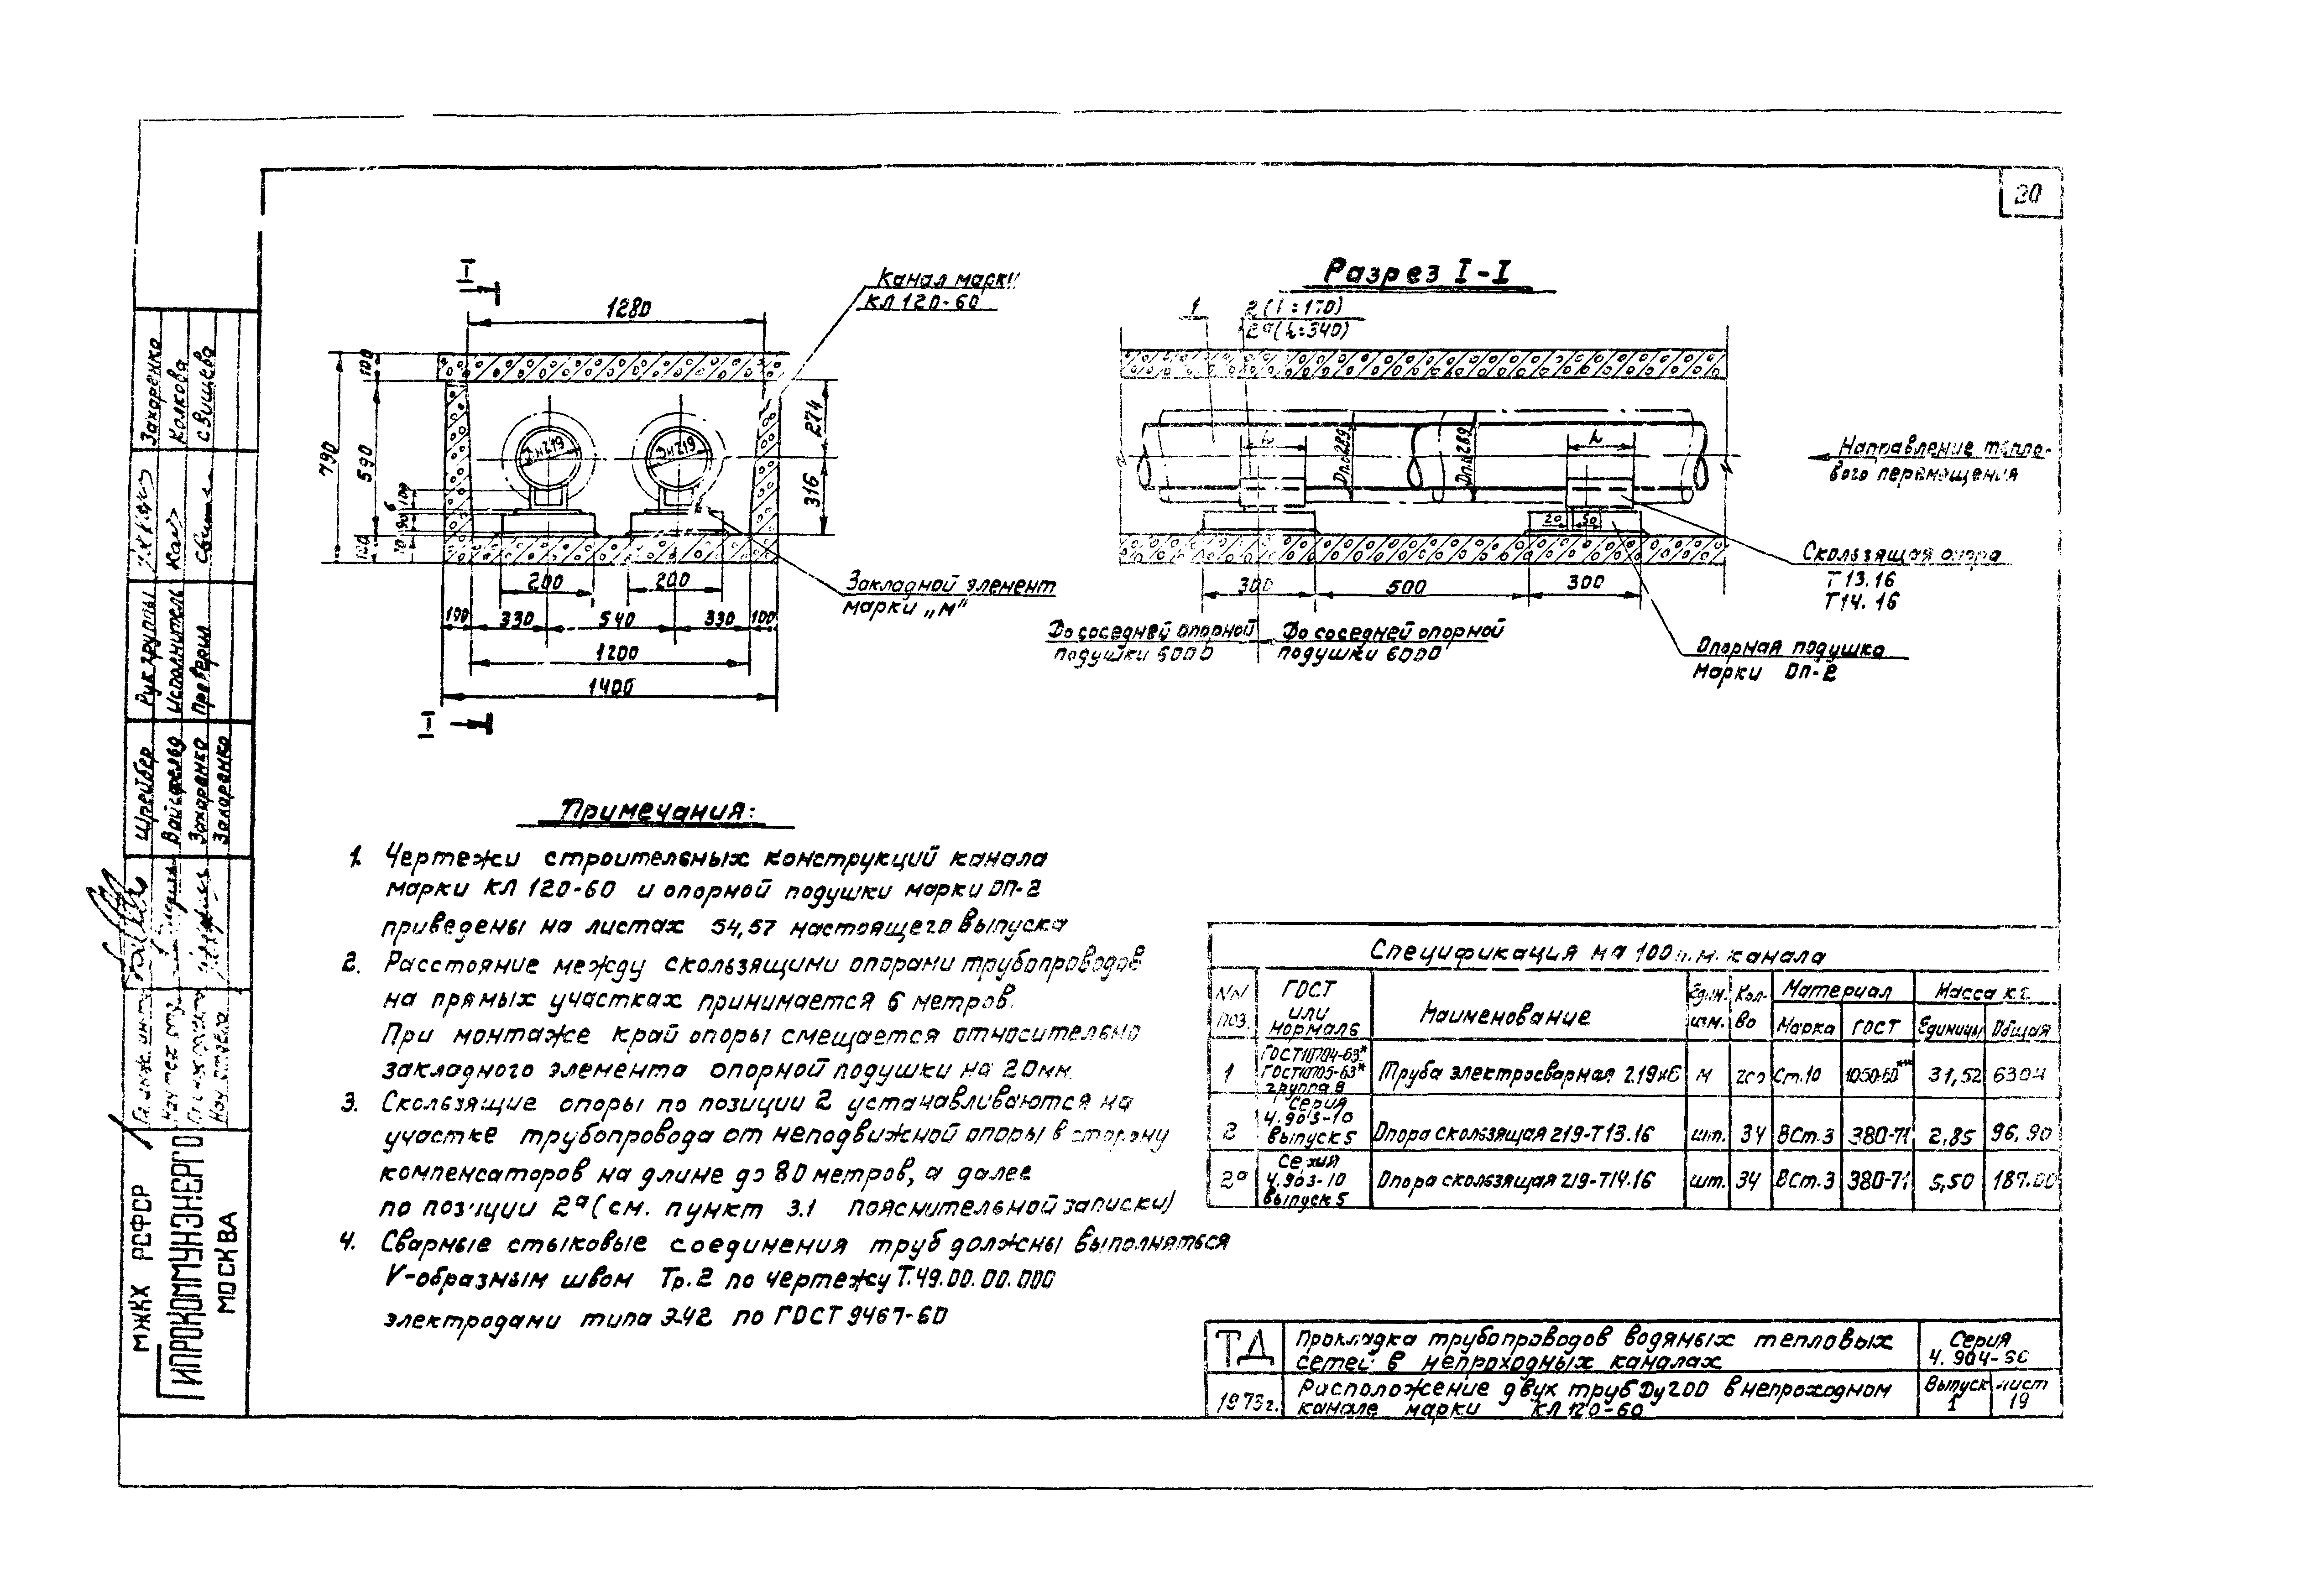 20
I
Канал марки
КЛ 120-60
1280
100
790
590
100
274
316
Дн 219
Дн 219
100
6
90
200
200
Закладной элемент
марки „М"
100
330
540
330
100
1200
1400
I
Разрез I-I
1
2 (L=170)
2ª (L=340)
L
L
Dп.с 289
Dп.с 289
Направление тепло-
вого перемещения
20
50
Скользящая опора
Т 13.16
Т 14.16
300
500
300
До соседней опорной
подушки 6000
До соседней опорной
подушки 6000
Опорная подушка
марки ОП-2
Примечания:
1. Чертежи строительных конструкций канала
марки КЛ 120-60 и опорной подушки марки ОП-2
приведены на листах 54,57 настоящего выпуска
2. Расстояние между скользящими опорами трубопроводов
на прямых участках принимается 6 метров.
При монтаже край опоры смещается относительно
закладного элемента опорной подушки на 20мм.
3. Скользящие опоры по позиции 2 устанавливаются на
участке трубопровода от неподвижной опоры в сторону
компенсаторов на длине до 80 метров, а далее
по позиции 2ª (см. пункт 3.1 пояснительной записки)
4. Сварные стыковые соединения труб должны выполняться
V-образным швом Тр.2 по чертежу Т.49.00.00.000
электродами типа Э-42 по ГОСТ 9467-60
Спецификация на 100 п.м. канала
NN поз.
ГОСТ или нормаль
Наименование
Един. изм.
Кол-во
Материал
Марка
ГОСТ
Масса кг.
Единицы
Общая
1 ГОСТ10704-63* ГОСТ10705-63* группа В Труба электросварная 219х6 м 200 Ст.10 1050-60** 31,52 6304
2 Серия 4.903-10 выпуск 5 Опора скользящая 219-Т13.16 шт. 34 ВСт.3 380-71 2,85 96,90
2ª Серия 4.903-10 выпуск 5 Опора скользящая 219-Т14.16 шт. 34 ВСт.3 380-71 5,50 187.00
ТД
Прокладка трубопроводов водяных тепловых
сетей в непроходных каналах
Серия
1973г.
Расположение двух труб Ду200 в непроходном
канале марки КЛ 120-60
Выпуск
1
лист
19
Захаренко
Колкова
Свищева
Рук группы
Исполнитель
Проверил
Шрейбер
Вайсфельд
Захаренко
Захаренко
МЖКХ РСФСР
ГИПРОКОММУНЭНЕРГО
МОСКВА